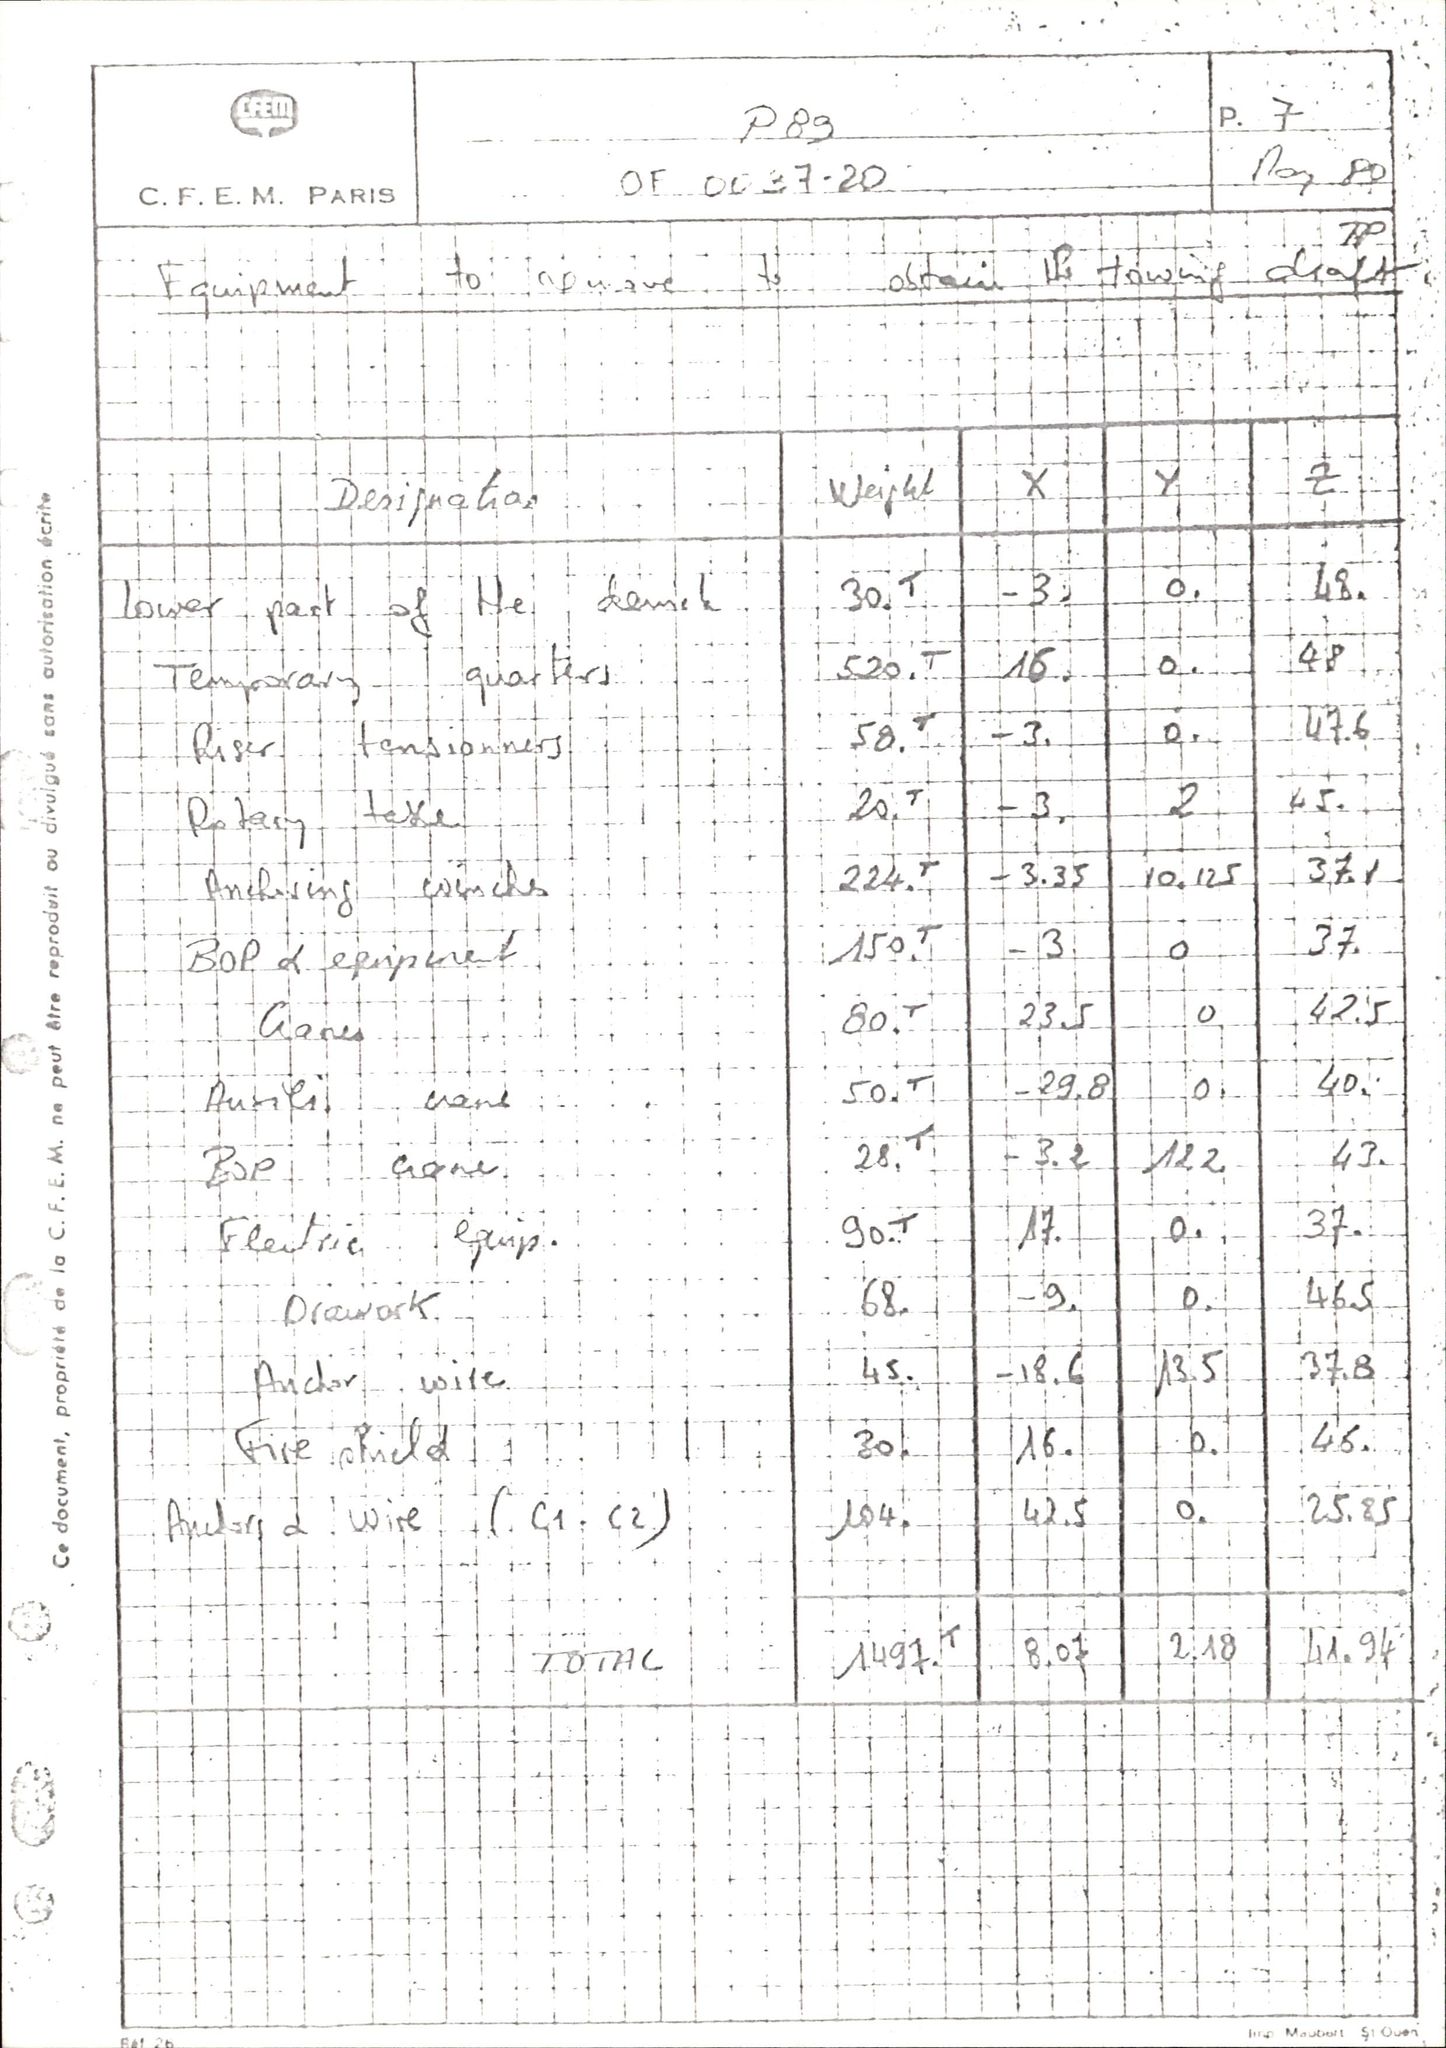 CFEM
C. F. E. M. PARIS
P89
OF 0037-20
P. 7
May 80
Equipment to remove to obtain the towing draft
Designation Weight X Y Z
Lower part of the derrick 30.T -3. 0. 48.
Temporary quarters 520.T 16. 0. 48
Riser tensionners 58.T -3. 0. 47.6
Rotary table 20.T -3. 2 45.
Anchoring winches 224.T -3.35 10.125 37.1
BOP & equipment 150.T -3 0 37.
Cranes 80.T 23.5 0 42.5
Auxili. crane 50.T -29.8 0. 40.
BOP crane 28.T -3.2 12.2 43.
Electric equip. 90.T 17. 0. 37.
Drawork 68. -9. 0. 46.5
Anchor wire 45. -18.6 13.5 37.8
Fire shield 30. 16. 0. 46.
Anchors & wire (C1. C2) 104. 42.5 0. 25.85
TOTAL 1497.T 8.07 2.18 41.94
Ce document, propriété de la C. F. E. M. ne peut être reproduit ou divulgué sans autorisation écrite
Réf. 26
Imp. Maubert St Ouen